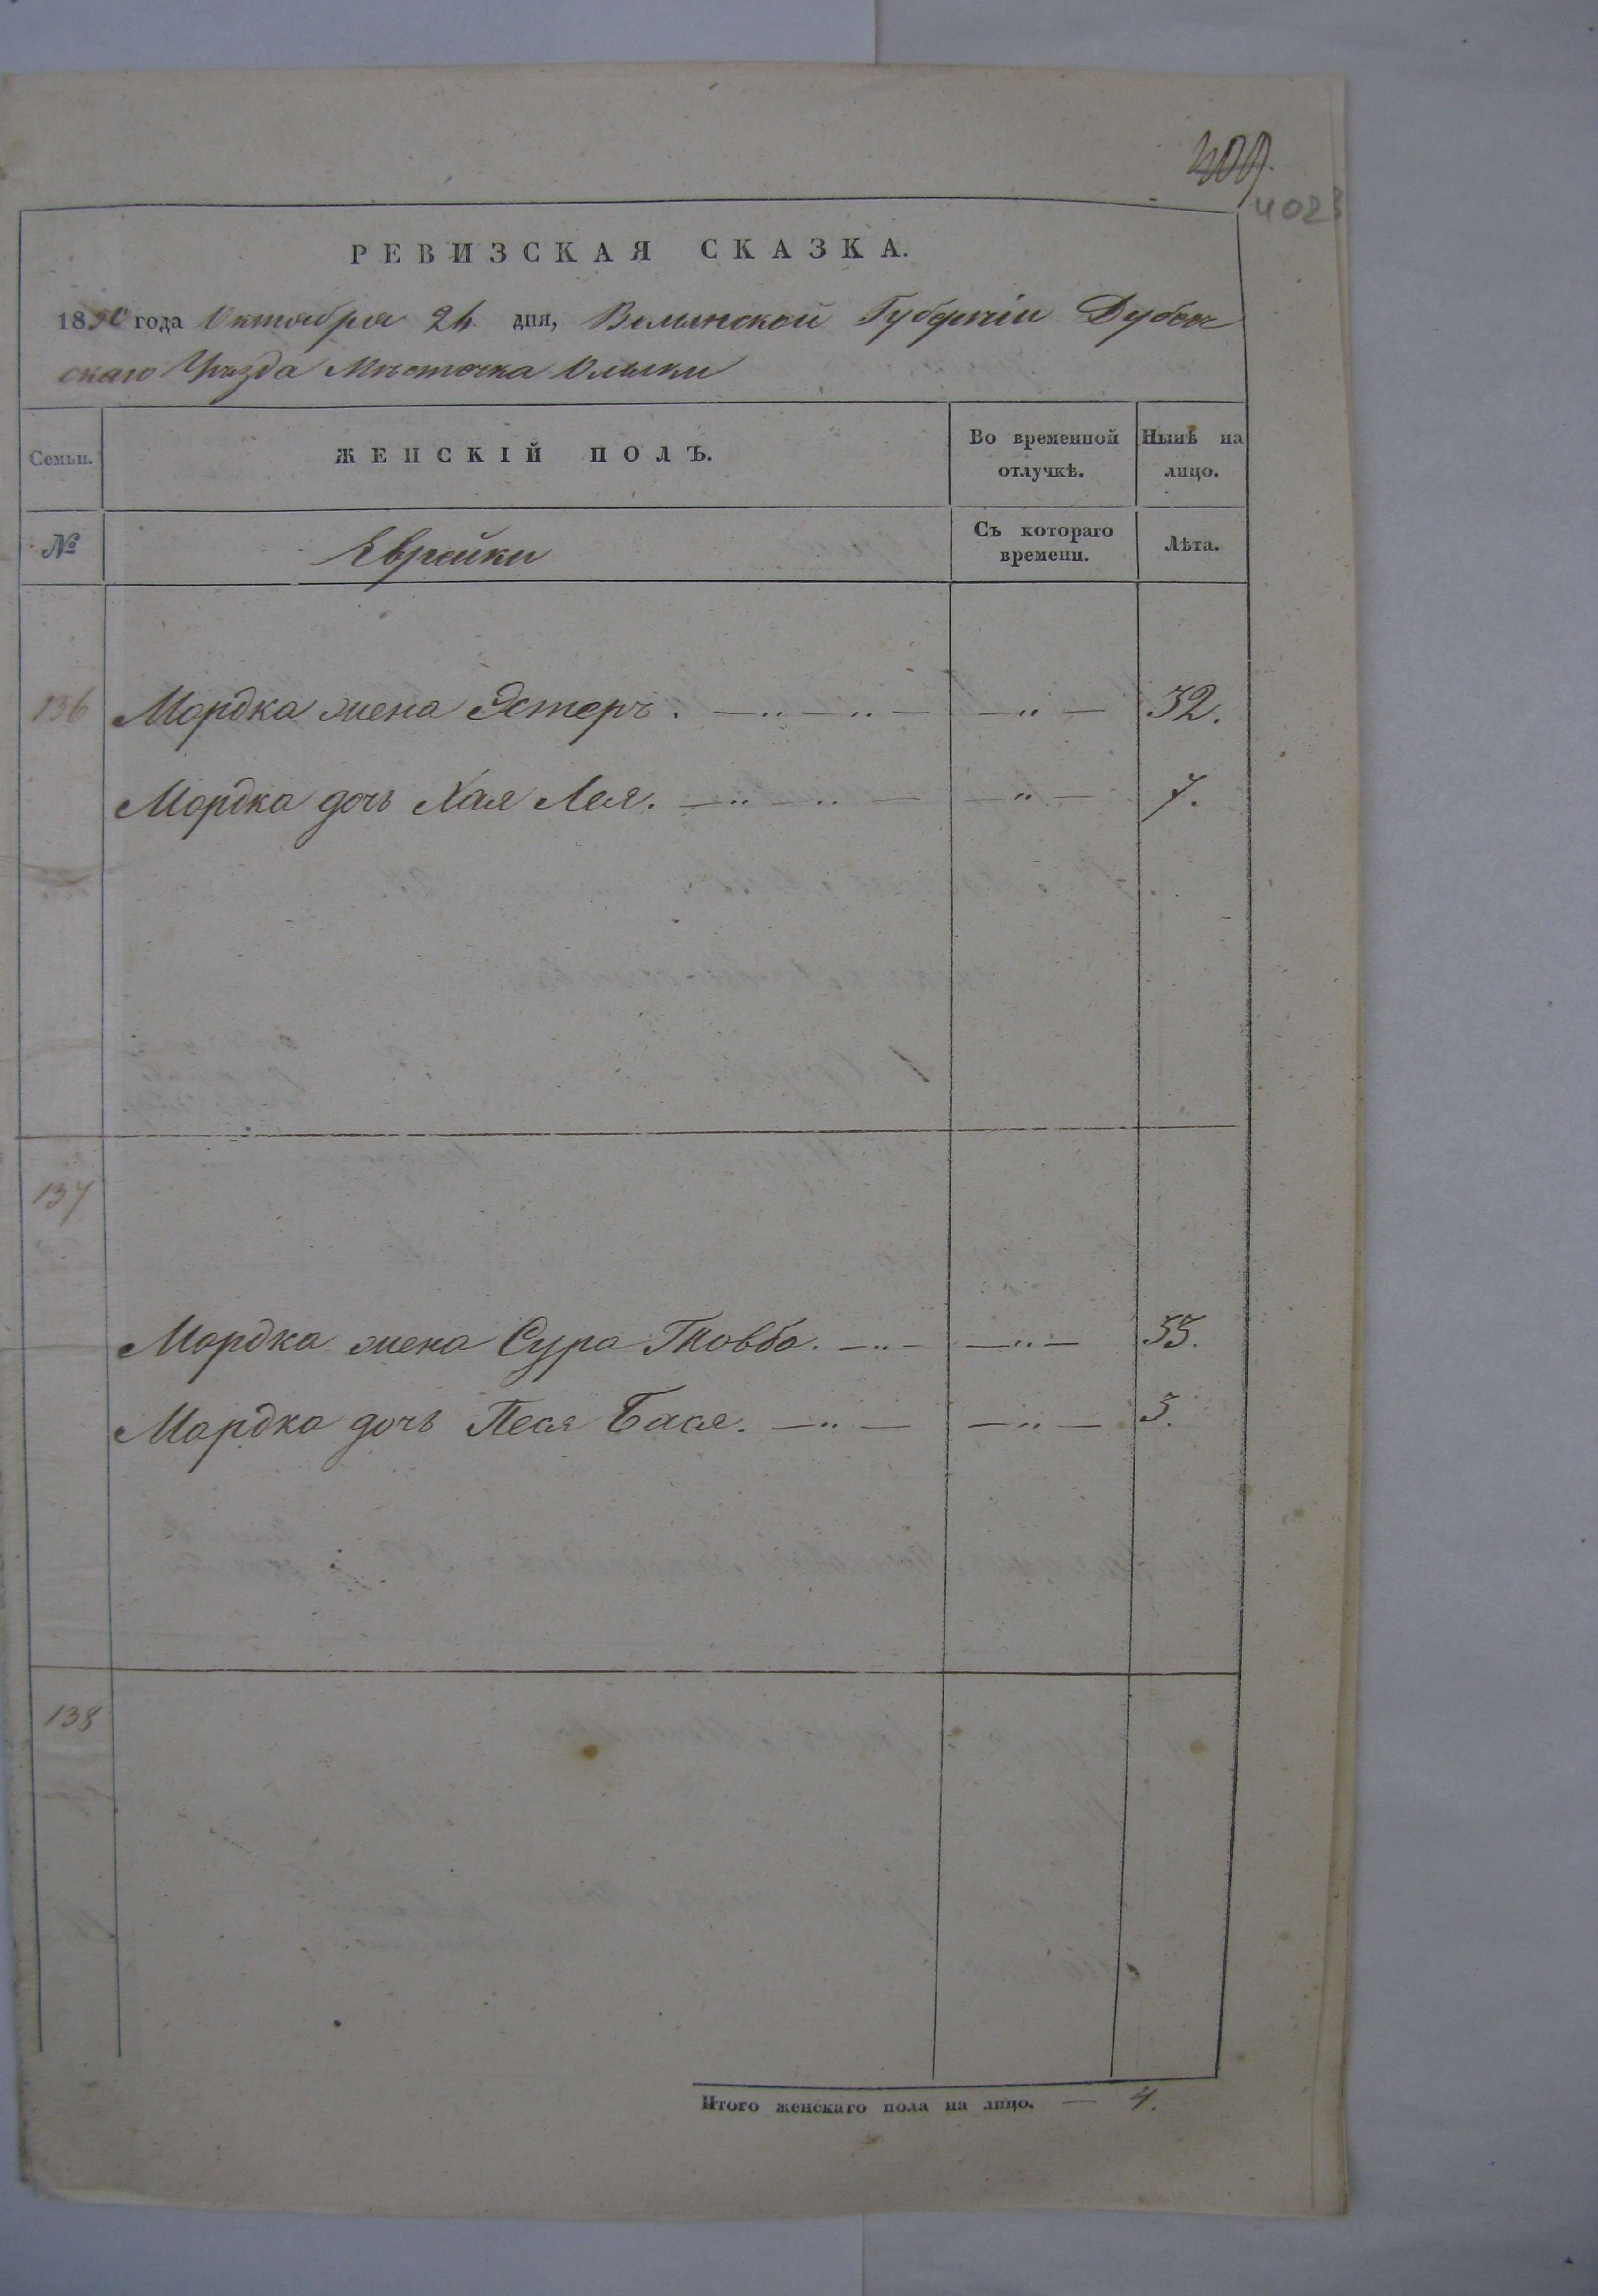 400.
402
РЕВИЗСКАЯ СКАЗКА.
1850 года Октября 26 дня, Волынской Губерніи Дубен
скаго Уѣзда Мѣстечка Олыки
Семьи. ЖЕНСКІЙ ПОЛЪ. Во временной отлучкѣ. Нынѣ на лицо.
№ Еврейки Съ котораго времени. Лѣта.
136 Мордка жена Эстеръ. — „ — „ — — „ — 32.
Мордка дочь Хая Лея. — „ — „ — — „ — 7.
137
Мордка жена Сура Товба. — „ — — „ — 35.
Мордка дочь Песя Бася. — „ — — „ — 3.
138
Итого женскаго пола на лицо. — 4.